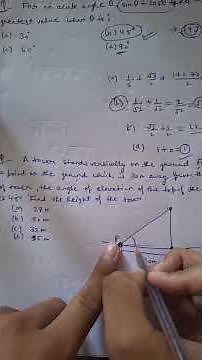 Q- For an acute angle θ, sinθ + cosθ
greatest value when θ is:
(a) 30°
(b) 45°
(c) 60°
(d) 90°
(a) 1/2 + √3/2 =
(b) 1/√2 + 1/√2 = 2/√2 = √2
(c) √3/2 + 1/2
(d) 1 + 0 = 1
Q- A tower stands vertically on the ground. F
a point on the ground which is 30m away from the
of tower, the angle of elevation of the top of the
45° Find the height of the tower
(a) 28m
(b) 30m
(c) 32m
(d) 35m